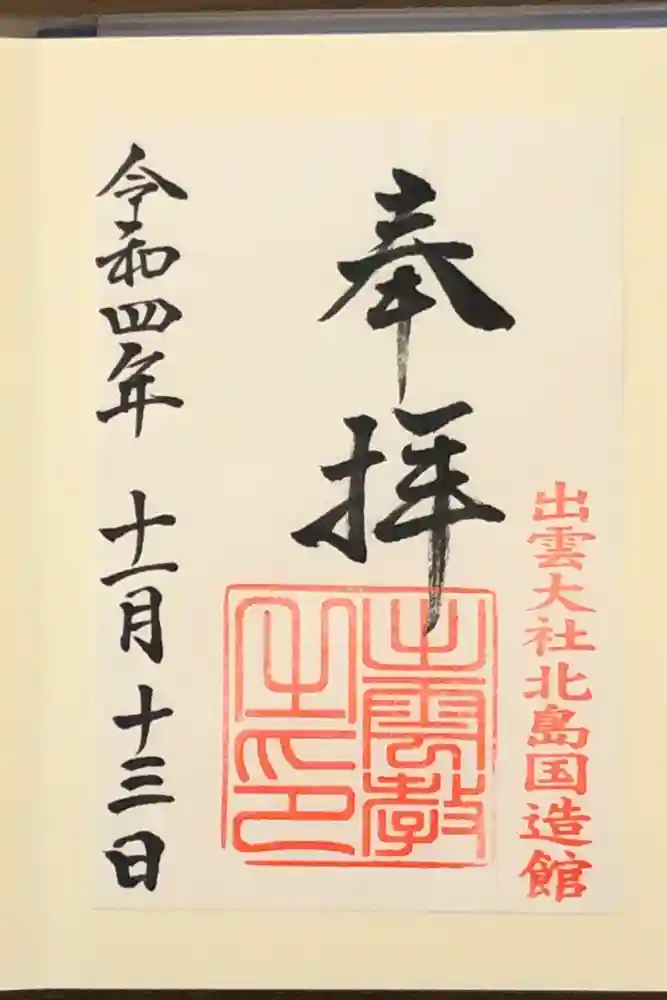 出雲大社北島国造館
奉拝
出雲教
之印
令和四年 十一月 十三日